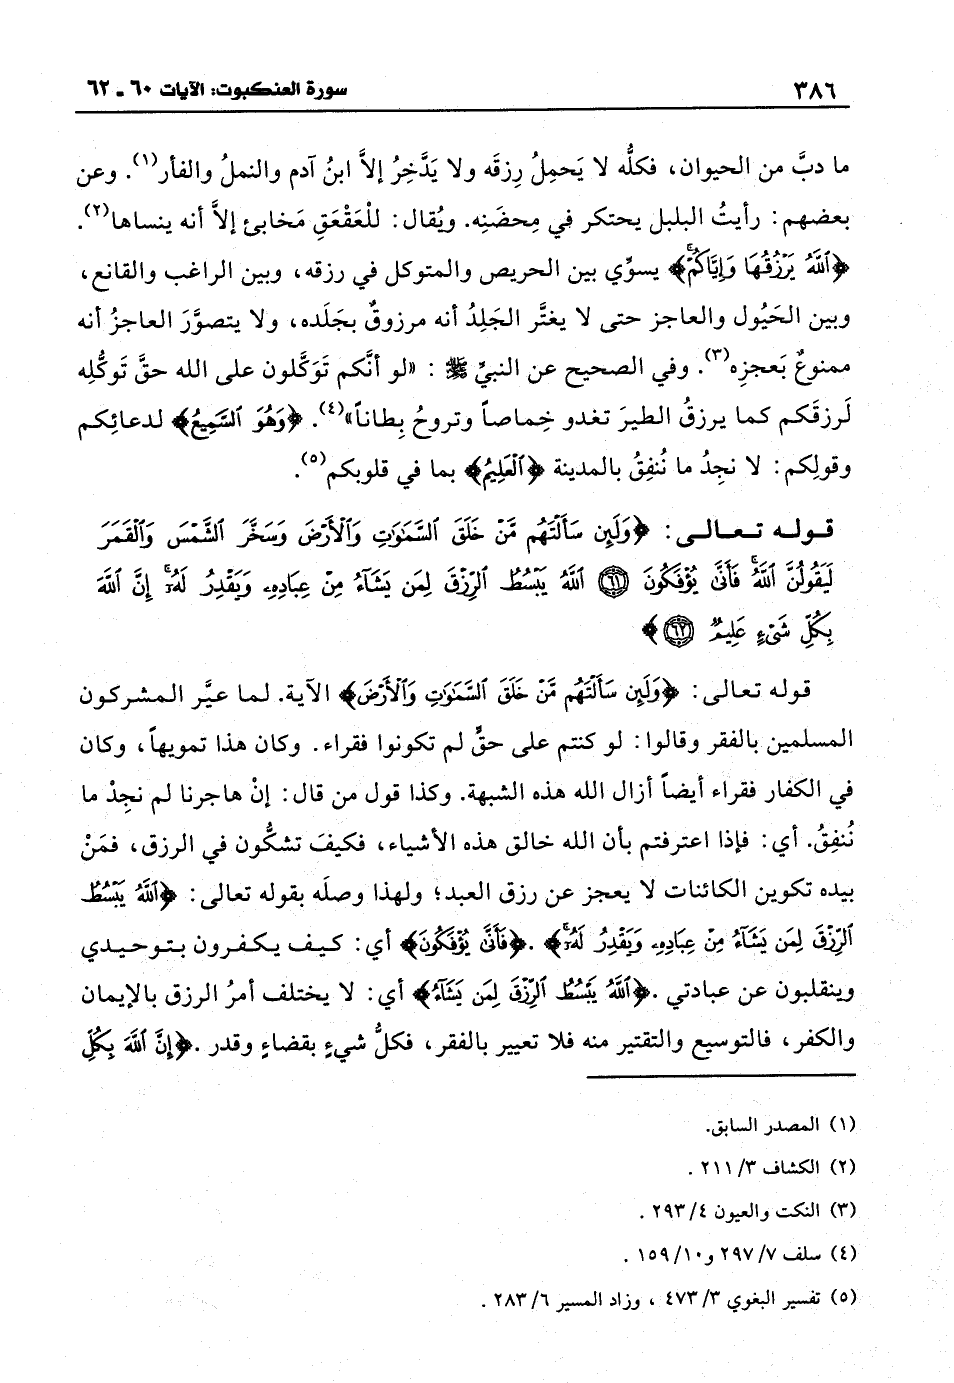 ٣٨٦
سورة العنكبوت: الآيات ٦٠ ـ ٦٢
ما دبَّ من الحيوان، فكلُّه لا يَحمِلُ رِزقَه ولا يَدَّخِرُ إلاَّ ابنُ آدم والنملُ والفأر(١). وعن
بعضهم: رأيتُ البلبل يحتكر في مِحضَنِه. ويُقال: للْعَقْعَقِ مَخابئ إلاَّ أنه ينساها(٢).
﴿اللَّهُ يَرْزُقُهَا وَإِيَّاكُمْ﴾ يسوِّي بين الحريص والمتوكل في رزقه، وبين الراغب والقانع،
وبين الحَيُول والعاجز حتى لا يغتَّر الجَلِدُ أنه مرزوقٌ بجَلَده، ولا يتصوَّرَ العاجزُ أنه
ممنوعٌ بَعجزِه(٣). وفي الصحيح عن النبيِّ ﷺ: «لو أنَّكم تَوَكَّلون على الله حقَّ تَوكُّلِه
لَرزقَكم كما يرزقُ الطيرَ تغدو خِماصاً وتروحُ بِطاناً»(٤). ﴿وَهُوَ السَّمِيعُ﴾ لدعائِكم
وقولِكم: لا نجِدُ ما نُنفِقُ بالمدينة ﴿الْعَلِيمُ﴾ بما في قلوبكم(٥).
قوله تعالى: ﴿وَلَئِن سَأَلْتَهُم مَّنْ خَلَقَ السَّمَٰوَٰتِ وَالْأَرْضَ وَسَخَّرَ الشَّمْسَ وَالْقَمَرَ
لَيَقُولُنَّ اللَّهُ ۖ فَأَنَّىٰ يُؤْفَكُونَ ٦١ اللَّهُ يَبْسُطُ الرِّزْقَ لِمَن يَشَآءُ مِنْ عِبَادِهِۦ وَيَقْدِرُ لَهُۥٓ ۚ إِنَّ اللَّهَ
بِكُلِّ شَىْءٍ عَلِيمٌ ٦٢﴾
قوله تعالى: ﴿وَلَئِن سَأَلْتَهُم مَّنْ خَلَقَ السَّمَٰوَٰتِ وَالْأَرْضَ﴾ الآية. لما عيَّر المشركون
المسلمين بالفقر وقالوا: لو كنتم على حقٍّ لم تكونوا فقراء. وكان هذا تمويهاً، وكان
في الكفار فقراء أيضاً أزال الله هذه الشبهة. وكذا قول من قال: إنْ هاجرنا لم نجِدْ ما
نُنفِقُ. أي: فإذا اعترفتم بأن الله خالق هذه الأشياء، فكيفَ تشكُّون في الرزق، فمَنْ
بيده تكوين الكائنات لا يعجز عن رزق العبد؛ ولهذا وصلَه بقوله تعالى: ﴿اللَّهُ يَبْسُطُ
الرِّزْقَ لِمَن يَشَآءُ مِنْ عِبَادِهِۦ وَيَقْدِرُ لَهُۥٓ﴾. ﴿فَأَنَّىٰ يُؤْفَكُونَ﴾ أي: كيف يكفرون بتوحيدي
وينقلبون عن عبادتي. ﴿اللَّهُ يَبْسُطُ الرِّزْقَ لِمَن يَشَآءُ﴾ أي: لا يختلف أمرُ الرزق بالإيمان
والكفر، فالتوسيع والتقتير منه فلا تعيير بالفقر، فكلُّ شيءٍ بقضاءٍ وقدر. ﴿إِنَّ اللَّهَ بِكُلِّ
(١) المصدر السابق.
(٢) الكشاف ٣/ ٢١١.
(٣) النكت والعيون ٤/ ٢٩٣.
(٤) سلف ٧/ ٢٩٧ و١٠/ ١٥٩.
(٥) تفسير البغوي ٣/ ٤٧٣، وزاد المسير ٦/ ٢٨٣.